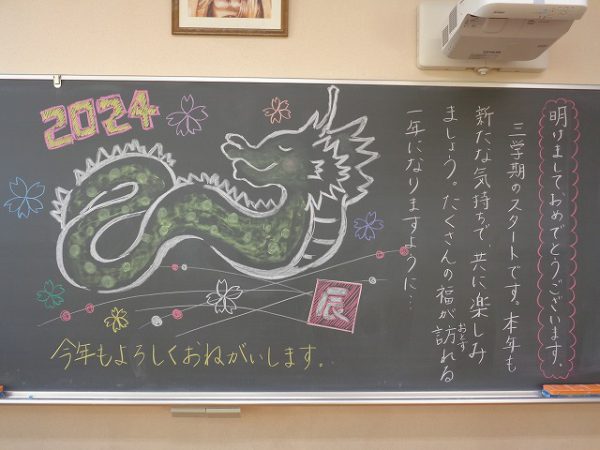 2024
明けましておめでとうございます。
三学期のスタートです。本年も
新たな気持ちで共に楽しみ
ましょう。たくさんの福が訪れる
おとず
一年になりますように…
辰
今年もよろしくおねがいします。